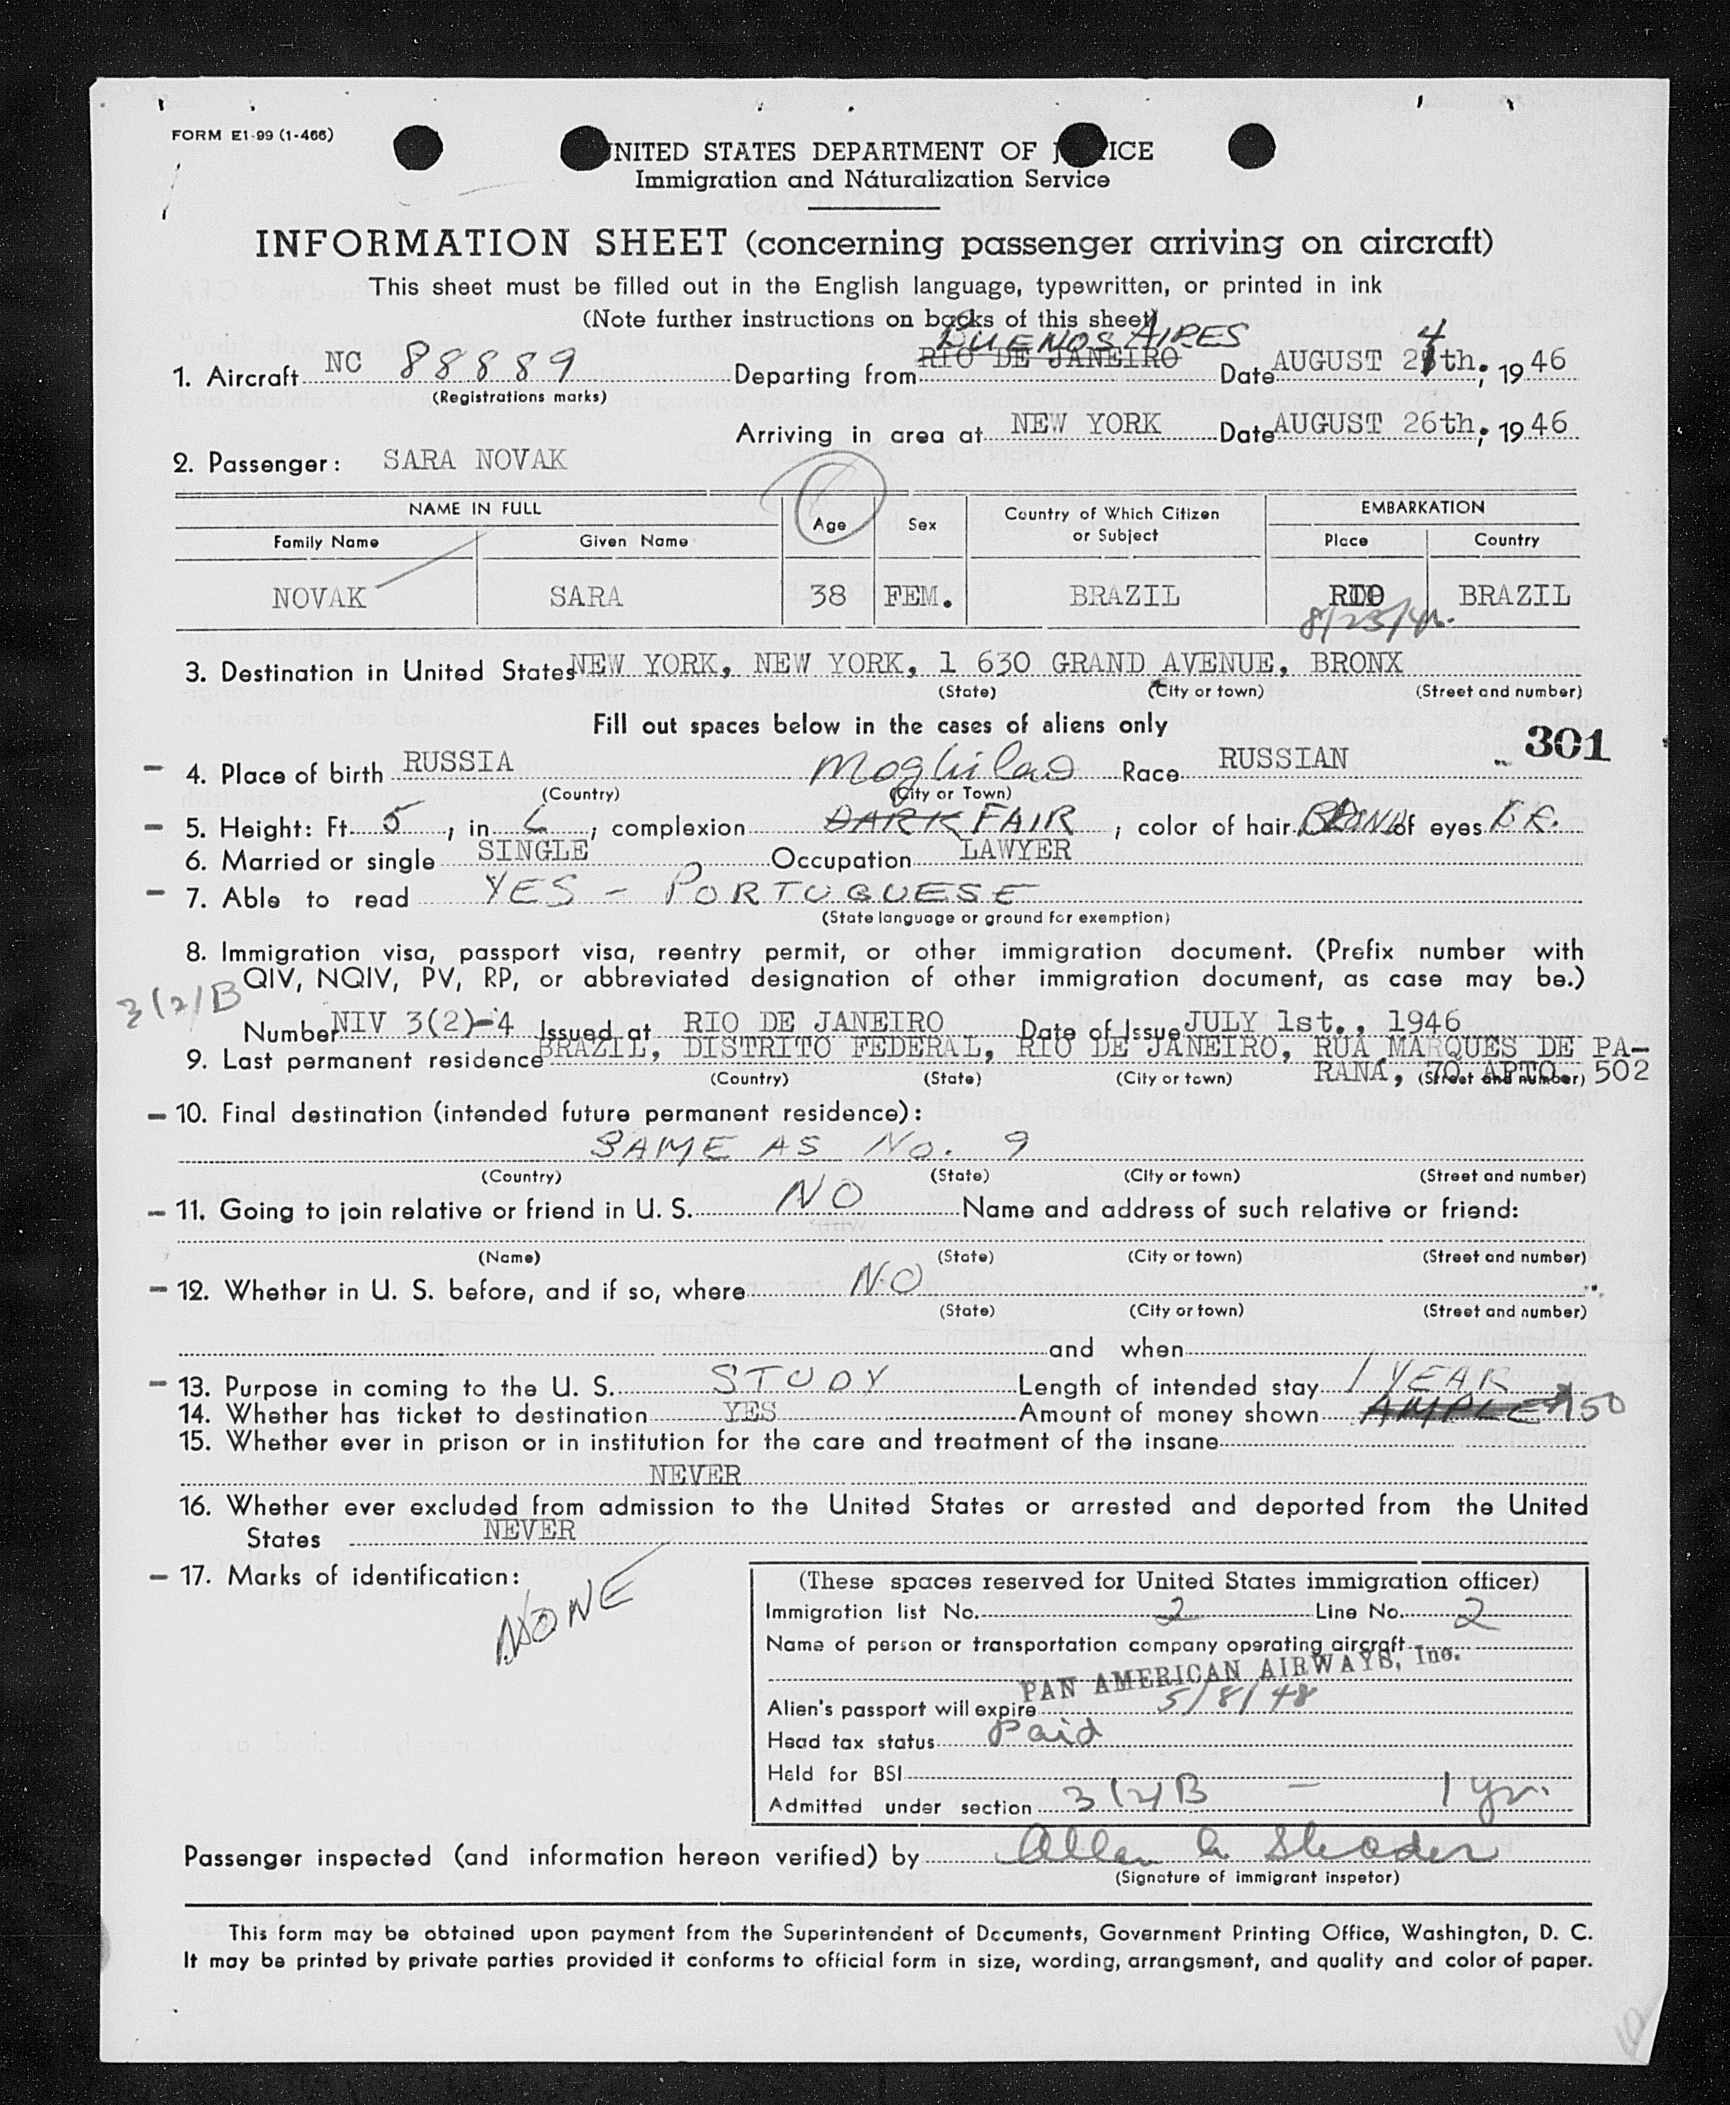 FORM E1-99 (1-466)
UNITED STATES DEPARTMENT OF JUSTICE
Immigration and Naturalization Service
INFORMATION SHEET (concerning passenger arriving on aircraft)
This sheet must be filled out in the English language, typewritten, or printed in ink
(Note further instructions on backs of this sheet)
BUENOS AIRES
1. Aircraft NC 88889 Departing from RIO DE JANEIRO Date AUGUST 24th, 1946
(Registrations marks)
Arriving in area at NEW YORK Date AUGUST 26th, 1946
2. Passenger: SARA NOVAK
NAME IN FULL Age Sex Country of Which Citizen or Subject EMBARKATION
Family Name Given Name Place Country
NOVAK SARA 38 FEM. BRAZIL RIO BRAZIL
8/25/46
3. Destination in United States NEW YORK, NEW YORK, 1 630 GRAND AVENUE, BRONX
(State) (City or town) (Street and number)
Fill out spaces below in the cases of aliens only
301
4. Place of birth RUSSIA Race RUSSIAN
(Country) (City or Town)
5. Height: Ft. 5, in 6; complexion DARK FAIR; color of hair BLOND of eyes
6. Married or single SINGLE Occupation LAWYER
7. Able to read YES - PORTUGUESE
(State language or ground for exemption)
8. Immigration visa, passport visa, reentry permit, or other immigration document. (Prefix number with
QIV, NQIV, PV, RP, or abbreviated designation of other immigration document, as case may be.)
3(2)B
Number NIV 3(2)-4 Issued at RIO DE JANEIRO Date of Issue JULY 1st., 1946
9. Last permanent residence BRAZIL, DISTRITO FEDERAL, RIO DE JANEIRO, RUA MARQUES DE PA-
RANA, 70 APTO. 502
(Country) (State) (City or town) (Street and number)
10. Final destination (intended future permanent residence):
SAME AS No. 9
(Country) (State) (City or town) (Street and number)
11. Going to join relative or friend in U. S. NO Name and address of such relative or friend:
(Name) (State) (City or town) (Street and number)
12. Whether in U. S. before, and if so, where NO
(State) (City or town) (Street and number)
and when
13. Purpose in coming to the U. S. STUDY Length of intended stay 1 YEAR
14. Whether has ticket to destination YES Amount of money shown AMPLE 150
15. Whether ever in prison or in institution for the care and treatment of the insane
NEVER
16. Whether ever excluded from admission to the United States or arrested and deported from the United
States NEVER
17. Marks of identification:
NONE
(These spaces reserved for United States immigration officer)
Immigration list No. 2 Line No. 2
Name of person or transportation company operating aircraft
PAN AMERICAN AIRWAYS, Inc.
Alien's passport will expire 5/8/48
Head tax status Paid
Held for BSI
Admitted under section 3(2)B - 1 yr.
Passenger inspected (and information hereon verified) by
(Signature of immigrant inspetor)
This form may be obtained upon payment from the Superintendent of Documents, Government Printing Office, Washington, D. C.
It may be printed by private parties provided it conforms to official form in size, wording, arrangement, and quality and color of paper.